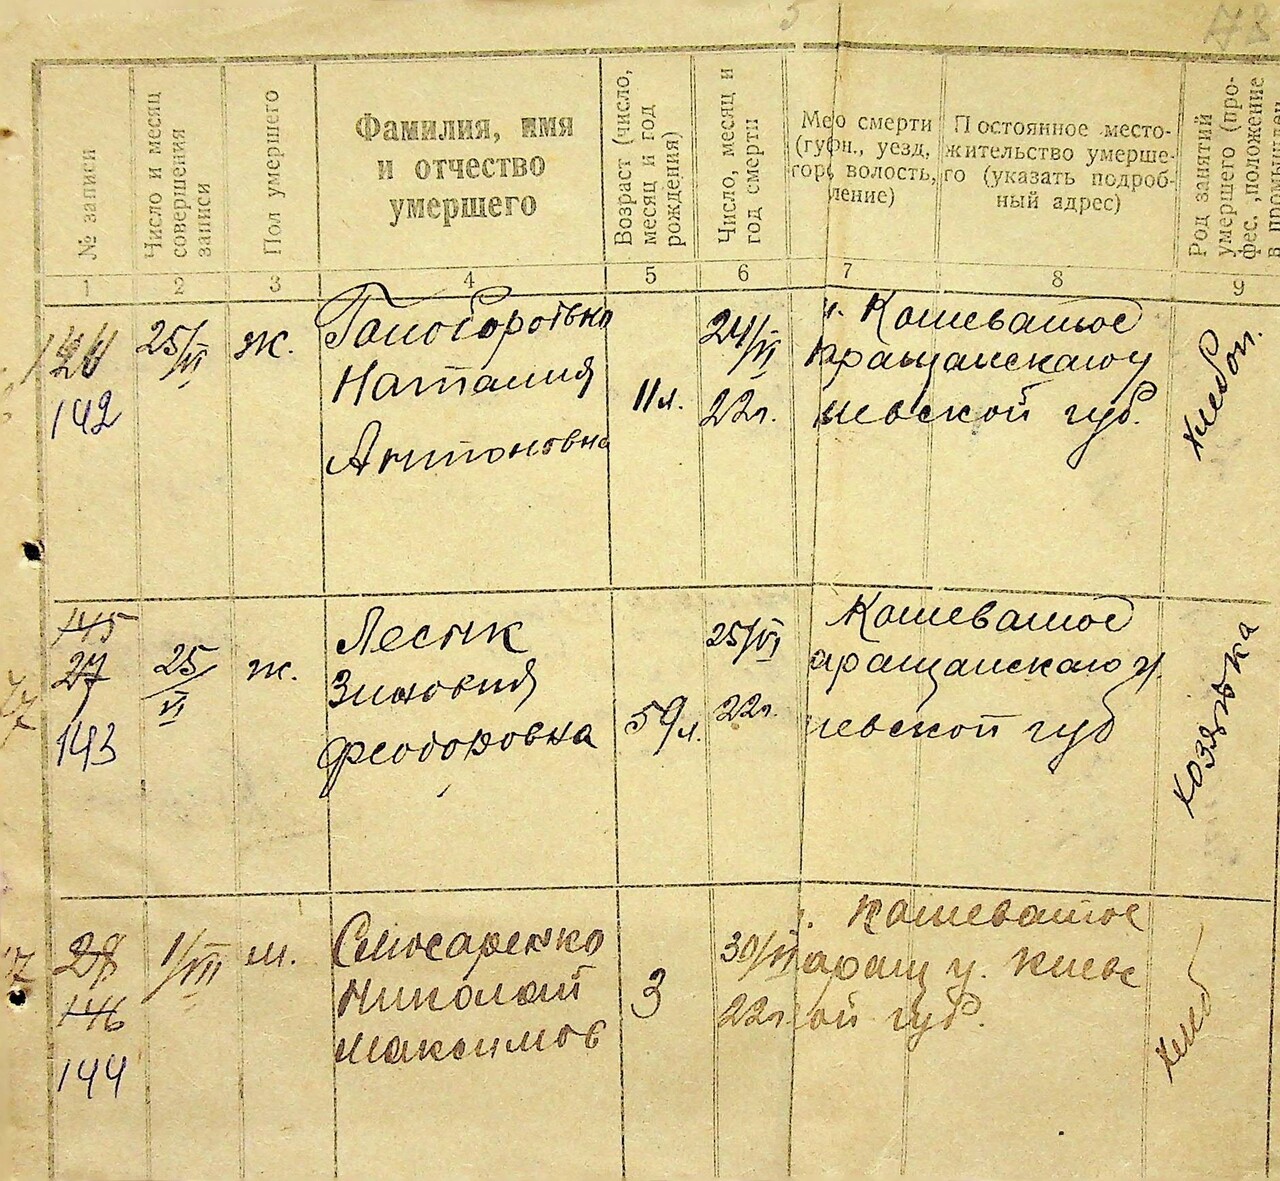 5
№ записи
Число и месяц
совершения
записи
Пол умершего
Фамилия, имя
и отчество
умершего
Возраст (число,
месяц и год
рождения)
Число, месяц и
год смерти
Ме о смерти
(губн., уезд,
гор. волость,
ление)
Постоянное место-
жительство умерше-
го (указать подроб-
ный адрес)
Род занятий
умершего (про-
фес. ,положение
в промышлен
1 2 3 4 5 6 7 8 9
25/VI
ж.
142
Наталия
Антоновна
11 л.
24/VI
22 г.
Кошеватое
аращанского у
иевской губ.
хлебоп.
145
27
143
25/VI
ж.
Лесык
Зиновия
Феодоровна
59 л.
25/VI
22 г.
Кошеватое
аращанского у.
иевской губ
хозяйка
28
146
144
1/VII
м.
Слюсаренко
Николай
Максимов
3
30/VI
22 г.
Кошеватое
аращ у. Киевс
ой губ.
хлеб